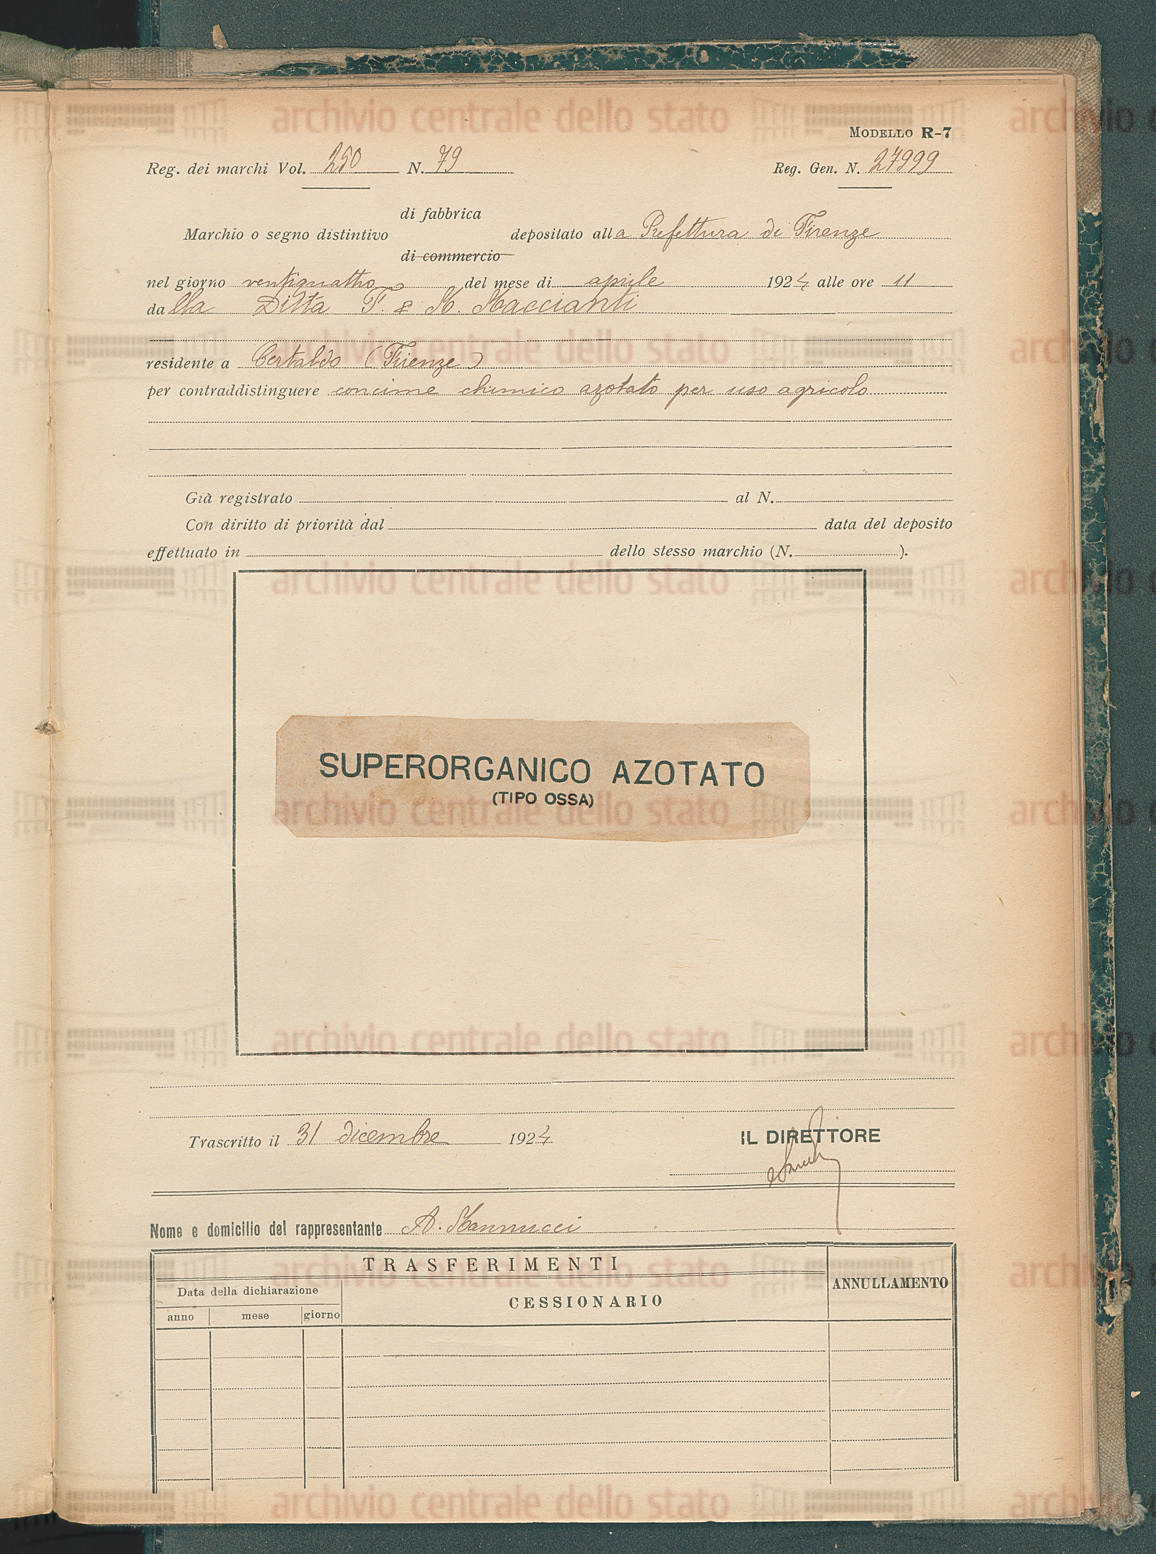 MODELLO R-7
Reg. dei marchi Vol. 250 N. 79 Reg. Gen. N. 27999
di fabbrica
Marchio o segno distintivo depositato alla Prefettura di Firenze
di commercio
nel giorno ventiquattro del mese di aprile 1924 alle ore 11
dalla Ditta F. & M. Maccianti
residente a Certaldo (Firenze)
per contraddistinguere concime chimico azotato per uso agricolo
Già registrato al N.
Con diritto di priorità dal data del deposito
effettuato in dello stesso marchio (N. ).
SUPERORGANICO AZOTATO
(TIPO OSSA)
Trascritto il 31 dicembre 1924
IL DIRETTORE
Nome e domicilio del rappresentante A. Mannucci
TRASFERIMENTI
ANNULLAMENTO
Data della dichiarazione
CESSIONARIO
anno mese giorno
archivio centrale dello stato